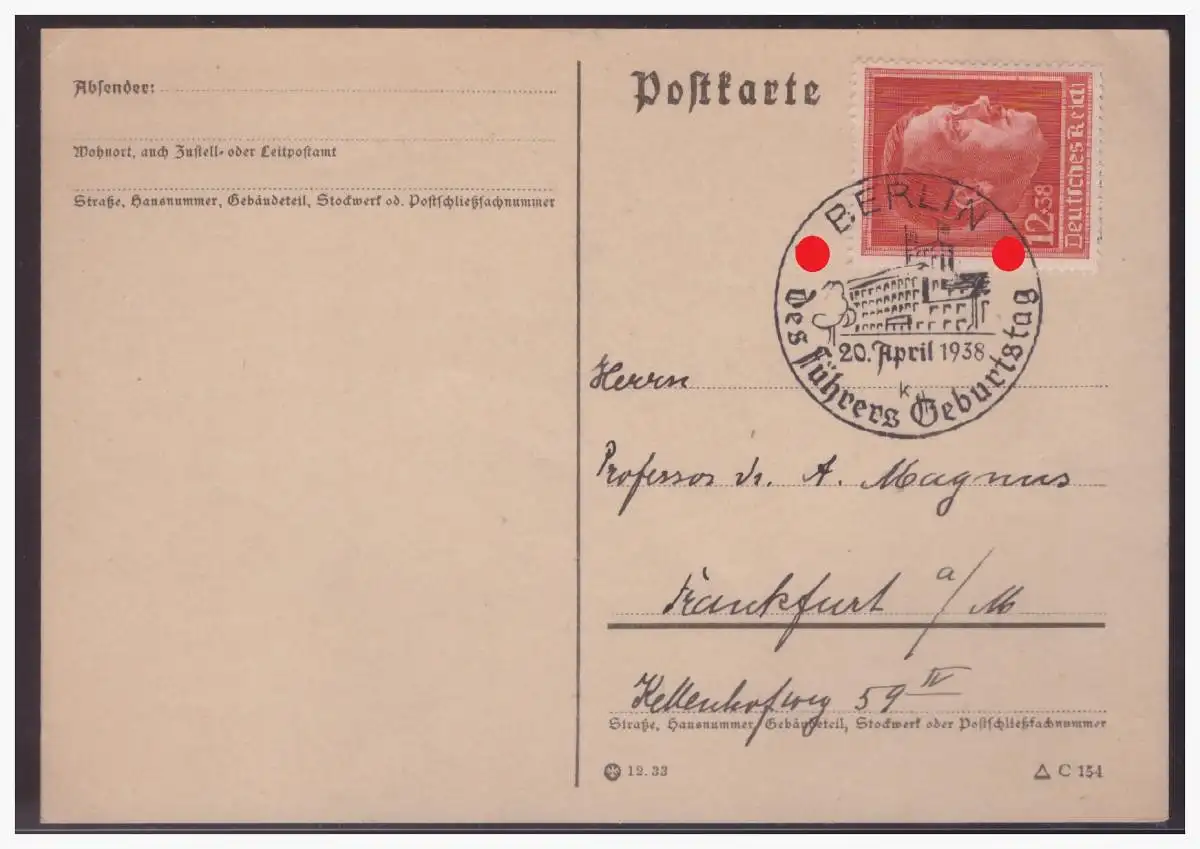 Absender:
Wohnort, auch Zustell- oder Leitpostamt
Straße, Hausnummer, Gebäudeteil, Stockwerk od. Postschließfachnummer
Postkarte
12+38
Deutsches Reich
BERLIN
20. April 1938
k
des Führers Geburtstag
Herrn
Professor Dr. A. Magnus
Frankfurt a/M
Kettenhofweg 59 IV
Straße, Hausnummer, Gebäudeteil, Stockwerk oder Postschließfachnummer
12. 33
C 154